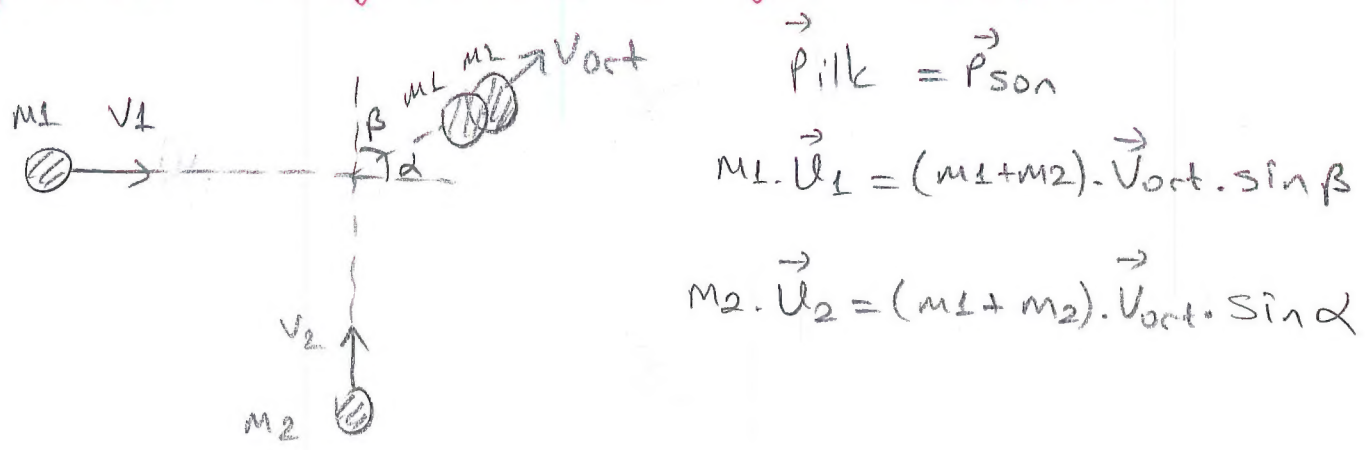 m1 m2 Vort
M1 V1
β
α
V2
M2
P⃗ilk = P⃗son
m1.U⃗1 = (m1+m2).V⃗ort.sinβ
m2.U⃗2 = (m1+m2).V⃗ort.sinα